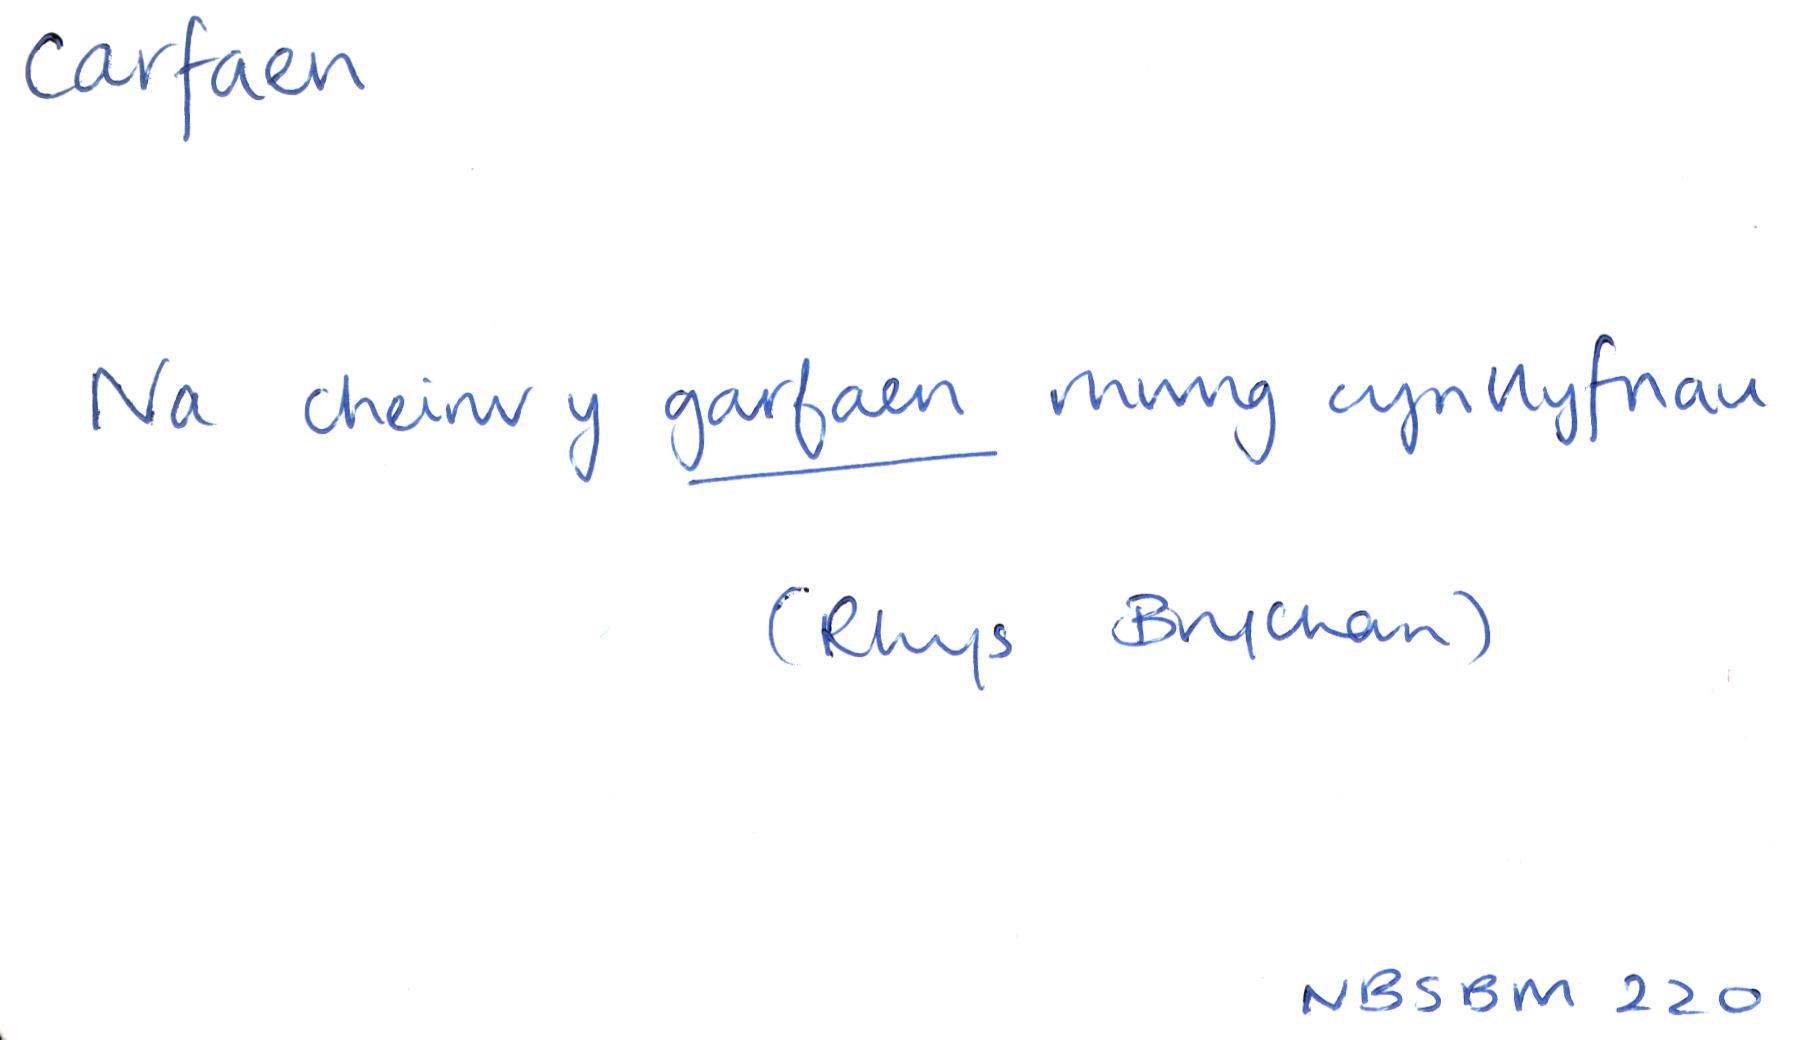 Carfaen
Na cheinw y garfaen mwng cynllyfnau
(Rhys Brychan)
NBSBM 220